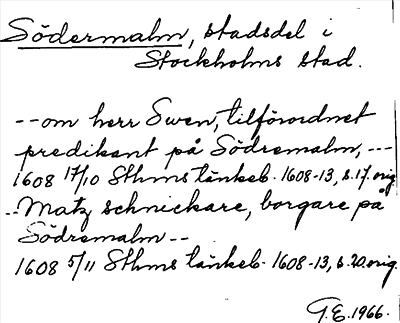 Södermalm, stadsdel i
Stockholms stad.
--om herr Swen, tilförordnet
predikant på Södremalm, --
1608 17/10 Sthms tänkeb. 1608-13, s.17. orig.
--Matz schnickare, borgare på
Södremalm --
1608 5/11 Sthms tänkeb. 1608-13, s.20. orig.
G.E. 1966.